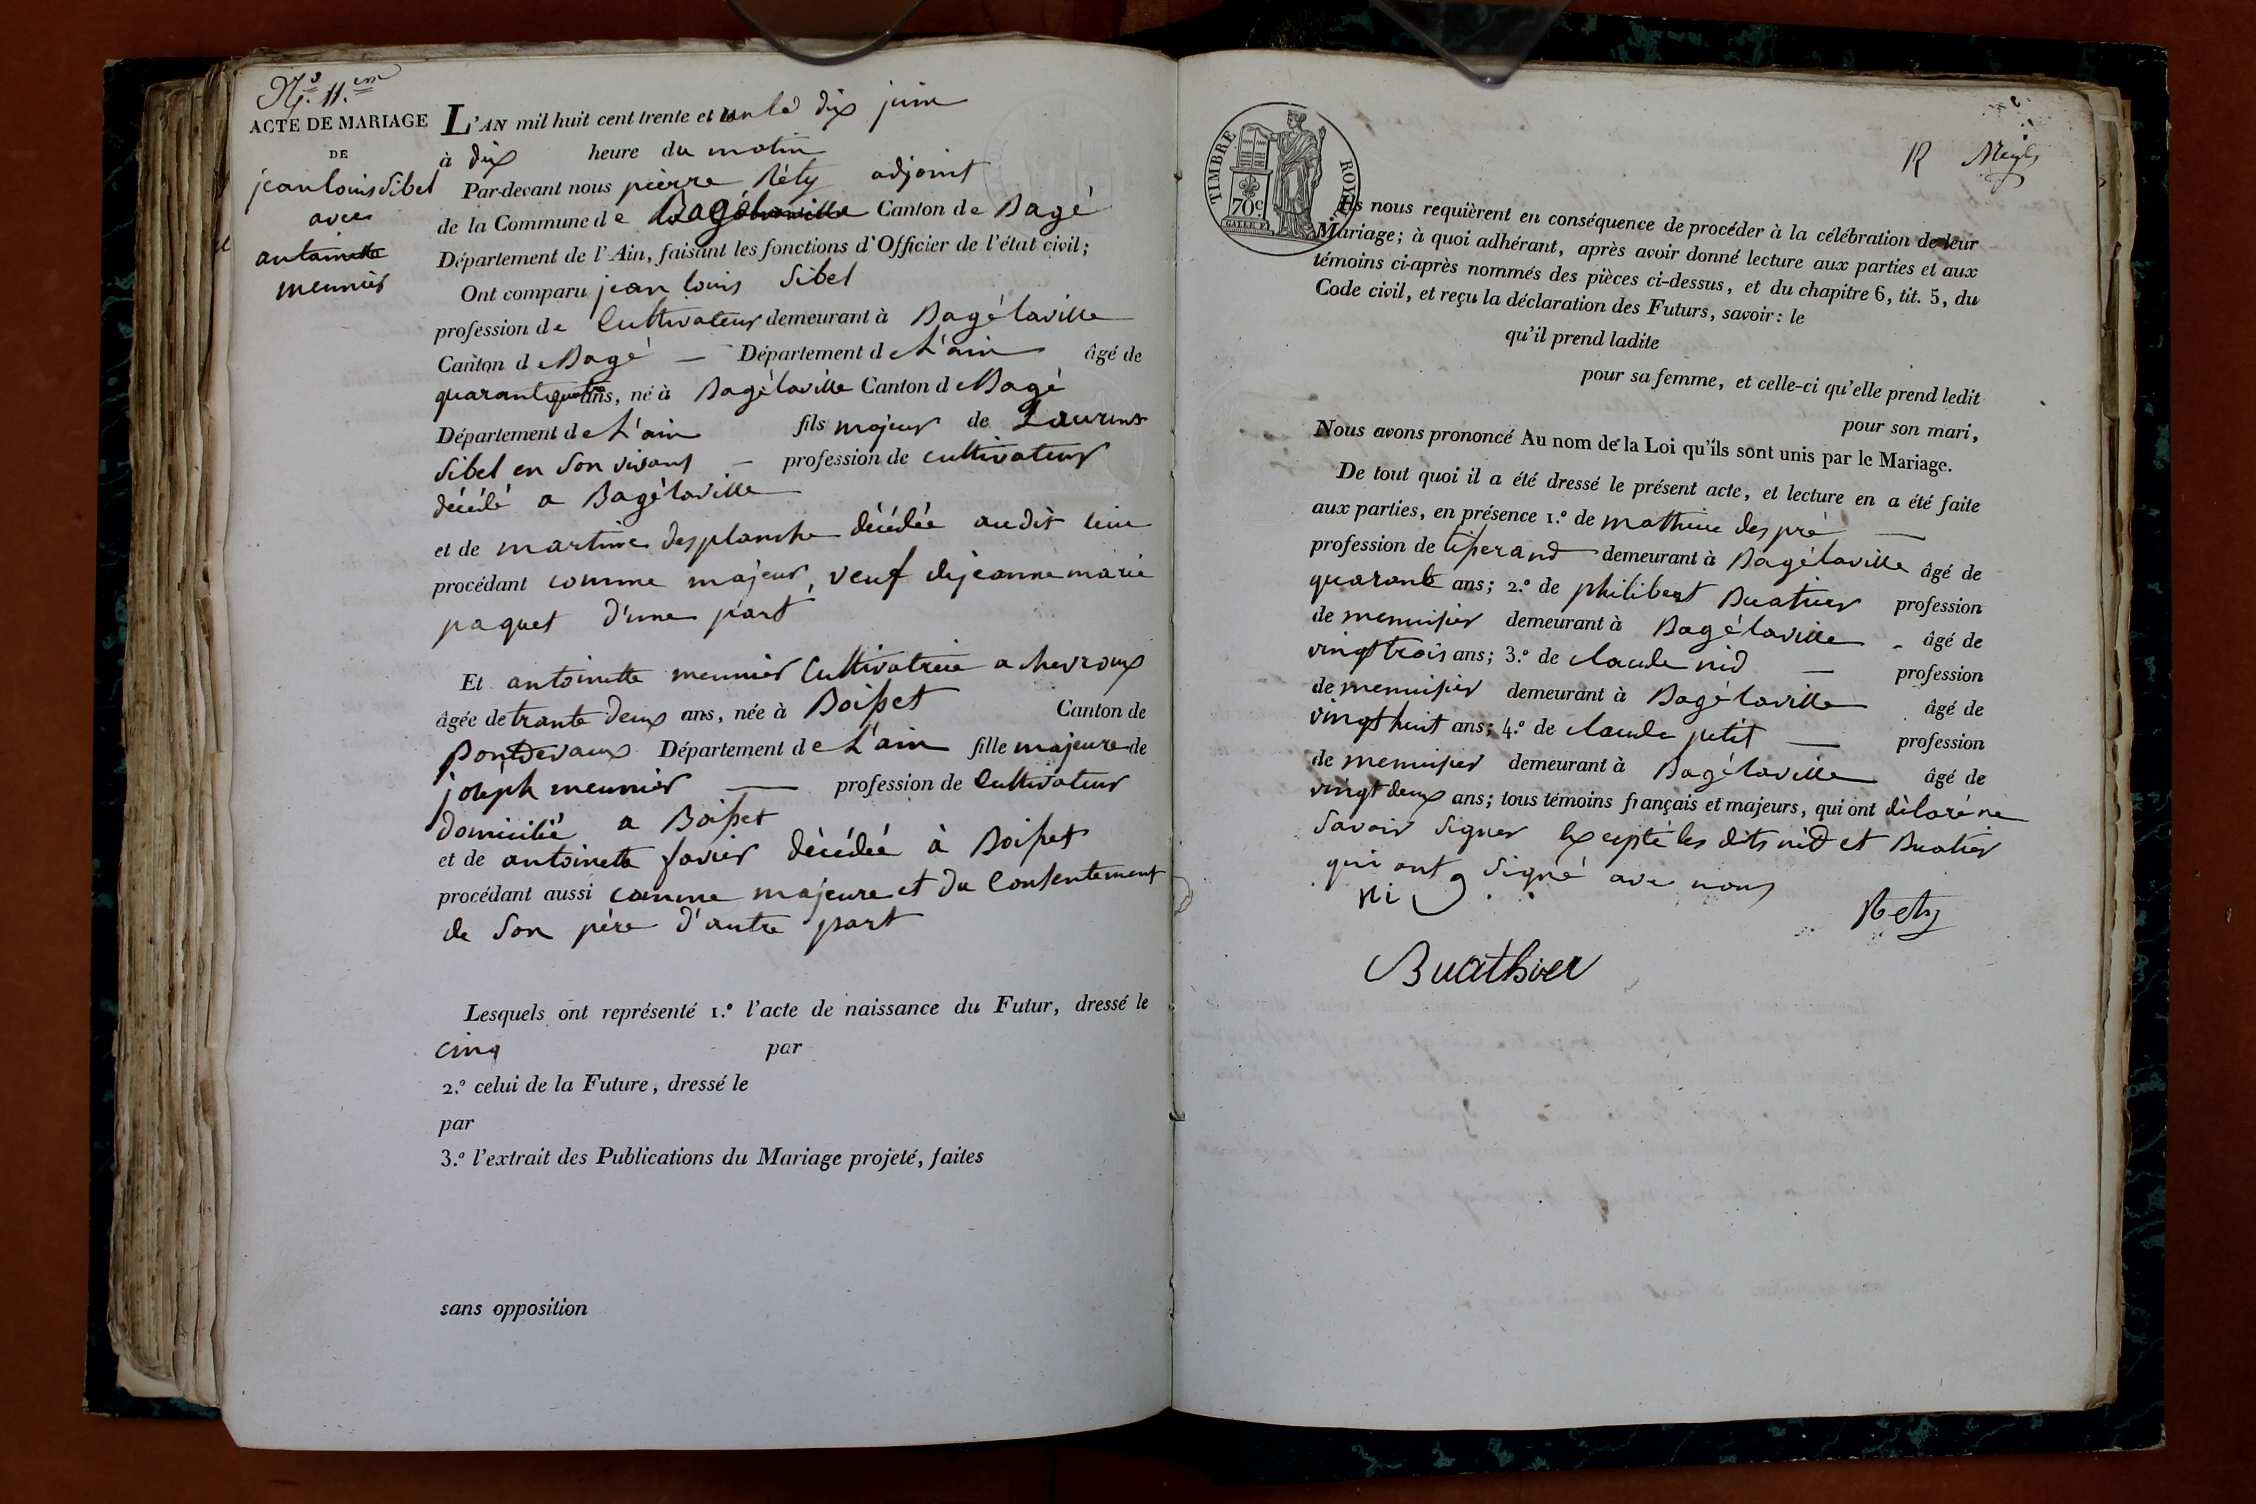 N.º 11.em
ACTE DE MARIAGE
DE
jean louis Sibel
avec
antoinette
meunier
L'AN mil huit cent trente et un le dix juin
à dix heure du matin
Par-devant nous pierre Réty adjoint
de la Commune de Bagélaville Canton de Bagé
Département de l'Ain, faisant les fonctions d'Officier de l'état civil;
Ont comparu jean louis Sibel
profession de Cultivateur demeurant à Bagélaville
Canton de Bagé — Département de L'ain âgé de
quarante quatre ans, né à Bagélaville Canton de Bagé
Département de L'ain fils majeur de Laurent
Sibel en son vivant — profession de cultivateur
décédé a Bagélaville
et de martine desplanche décédée audit lieu
procédant comme majeur, veuf de jeanne marie
paquet d'une part
Et antoinette meunier Cultivatrice a chevroux
âgée de trante deux ans, née à Boisset Canton de
Pontdevaux Département de L'ain fille majeure de
joseph meunier — profession de Cultivateur
domicilié a Boisset
et de antoinette favier décédée à Boisset
procédant aussi comme majeure et du Consentement
de son père d'autre part
Lesquels ont représenté 1.º l'acte de naissance du Futur, dressé le
cinq par
2.º celui de la Future, dressé le
par
3.º l'extrait des Publications du Mariage projeté, faites
sans opposition
TIMBRE ROYAL
70c
R
Ils nous requièrent en conséquence de procéder à la célébration de leur
Mariage; à quoi adhérant, après avoir donné lecture aux parties et aux
témoins ci-après nommés des pièces ci-dessus, et du chapitre 6, tit. 5, du
Code civil, et reçu la déclaration des Futurs, savoir: le
qu'il prend ladite
pour sa femme, et celle-ci qu'elle prend ledit
pour son mari,
Nous avons prononcé Au nom de la Loi qu'ils sont unis par le Mariage.
De tout quoi il a été dressé le présent acte, et lecture en a été faite
aux parties, en présence 1.º de mathieu des pré —
profession de tiserand demeurant à Bagélaville âgé de
quarante ans; 2.º de philibert Buatier profession
de menuisier demeurant à Bagélaville âgé de
vingt trois ans; 3.º de claude nid — profession
de menuisier demeurant à Bagélaville âgé de
vingt huit ans; 4.º de claude petit — profession
de menuisier demeurant à Bagélaville âgé de
vingt deux ans; tous témoins français et majeurs, qui ont délaré ne
Savoir Signer Excepté les dits nid et Buatier
qui ont signé avec nous
Ni
Rety
Buathier